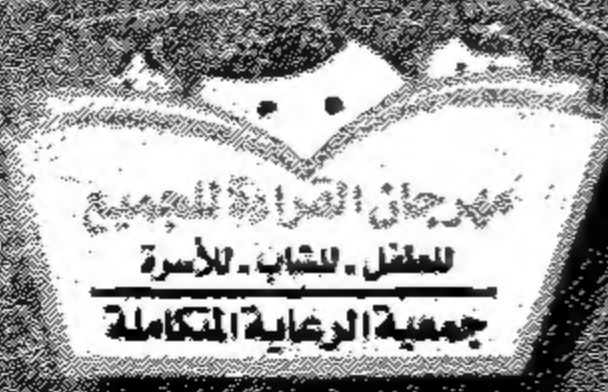 مهرجان القراءة للجميع
للطفل . للشاب . للأسرة
جمعية الرعاية المتكاملة